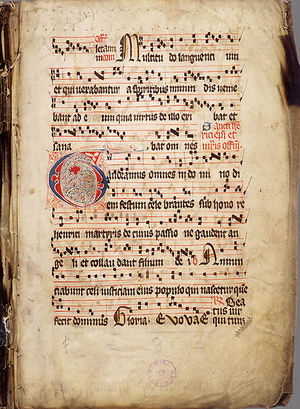 Multitu do languenti um
et qui verabantur a spiritibus inmun dis venie
bant ad e um quia virtus de illo exi bat et
sana bat om nes
Gaudeamus omnes in do mi no di
em festum cele brantes sub hono re
henrici martyris de cuius passio ne gaudent an
ge li et collau dant filium Annun
ciabunt celi iusticiam eius populo qui nascetur que
Bea
fecit dominus Gloria. EVOVAE tus vir qui tim